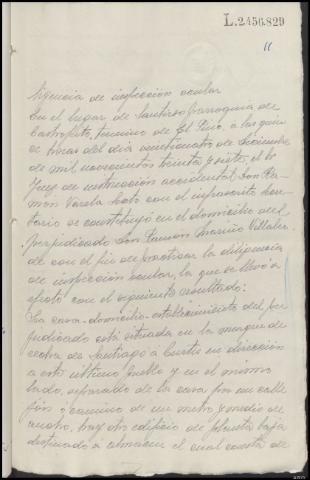 L.2456.829
11
Diligencia de inspección ocular
En el lugar de Santiso parroquia de
Castrofeito, termino de El Pino, a las quin
ce horas del dia veinticuatro de Diciembre
de mil novecientos treinta y siete, el Sr
Juez de instrucción accidental Don Ra
mon Varela Rato con el infrascrito Secre
tario se constituyó en el domicilio del
perjudicado Don Ramon Mariño Villalve
de con el fin de practicar la diligencia
de inspección ocular, la que se llevó a
efecto con el siguiente resultado:
La casa-domicilio-establecimiento del per
judicado está situada en la margen de
recha de Santiago a Curtis en dirección
a este ultimo pueblo y en el mismo
lado, separado de la casa por un calle
jón o camino de un metro y medio de
ancho, hay otro edificio de planta baja
destinado a almacen el cual consta de